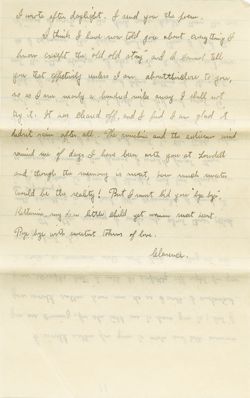 I wrote after daylight. I send you the poem.
I think I have now told you about everything I
know except the "old, old story," and I cannot tell
you that effectively unless I am to you,
so as I am nearly a hundred miles away I shall not
try it. It has cleared off, and I find I am glad it
didn't rain after all. The sunshine and the
remind me of days I have been with you at
and though the memory is sweet, how much sweeter
would be the reality! But I must bid you "bye bye"
Katharine, my dear little child yet woman sweet heart.
Bye bye with sweetest tokens of love.
Clarence.